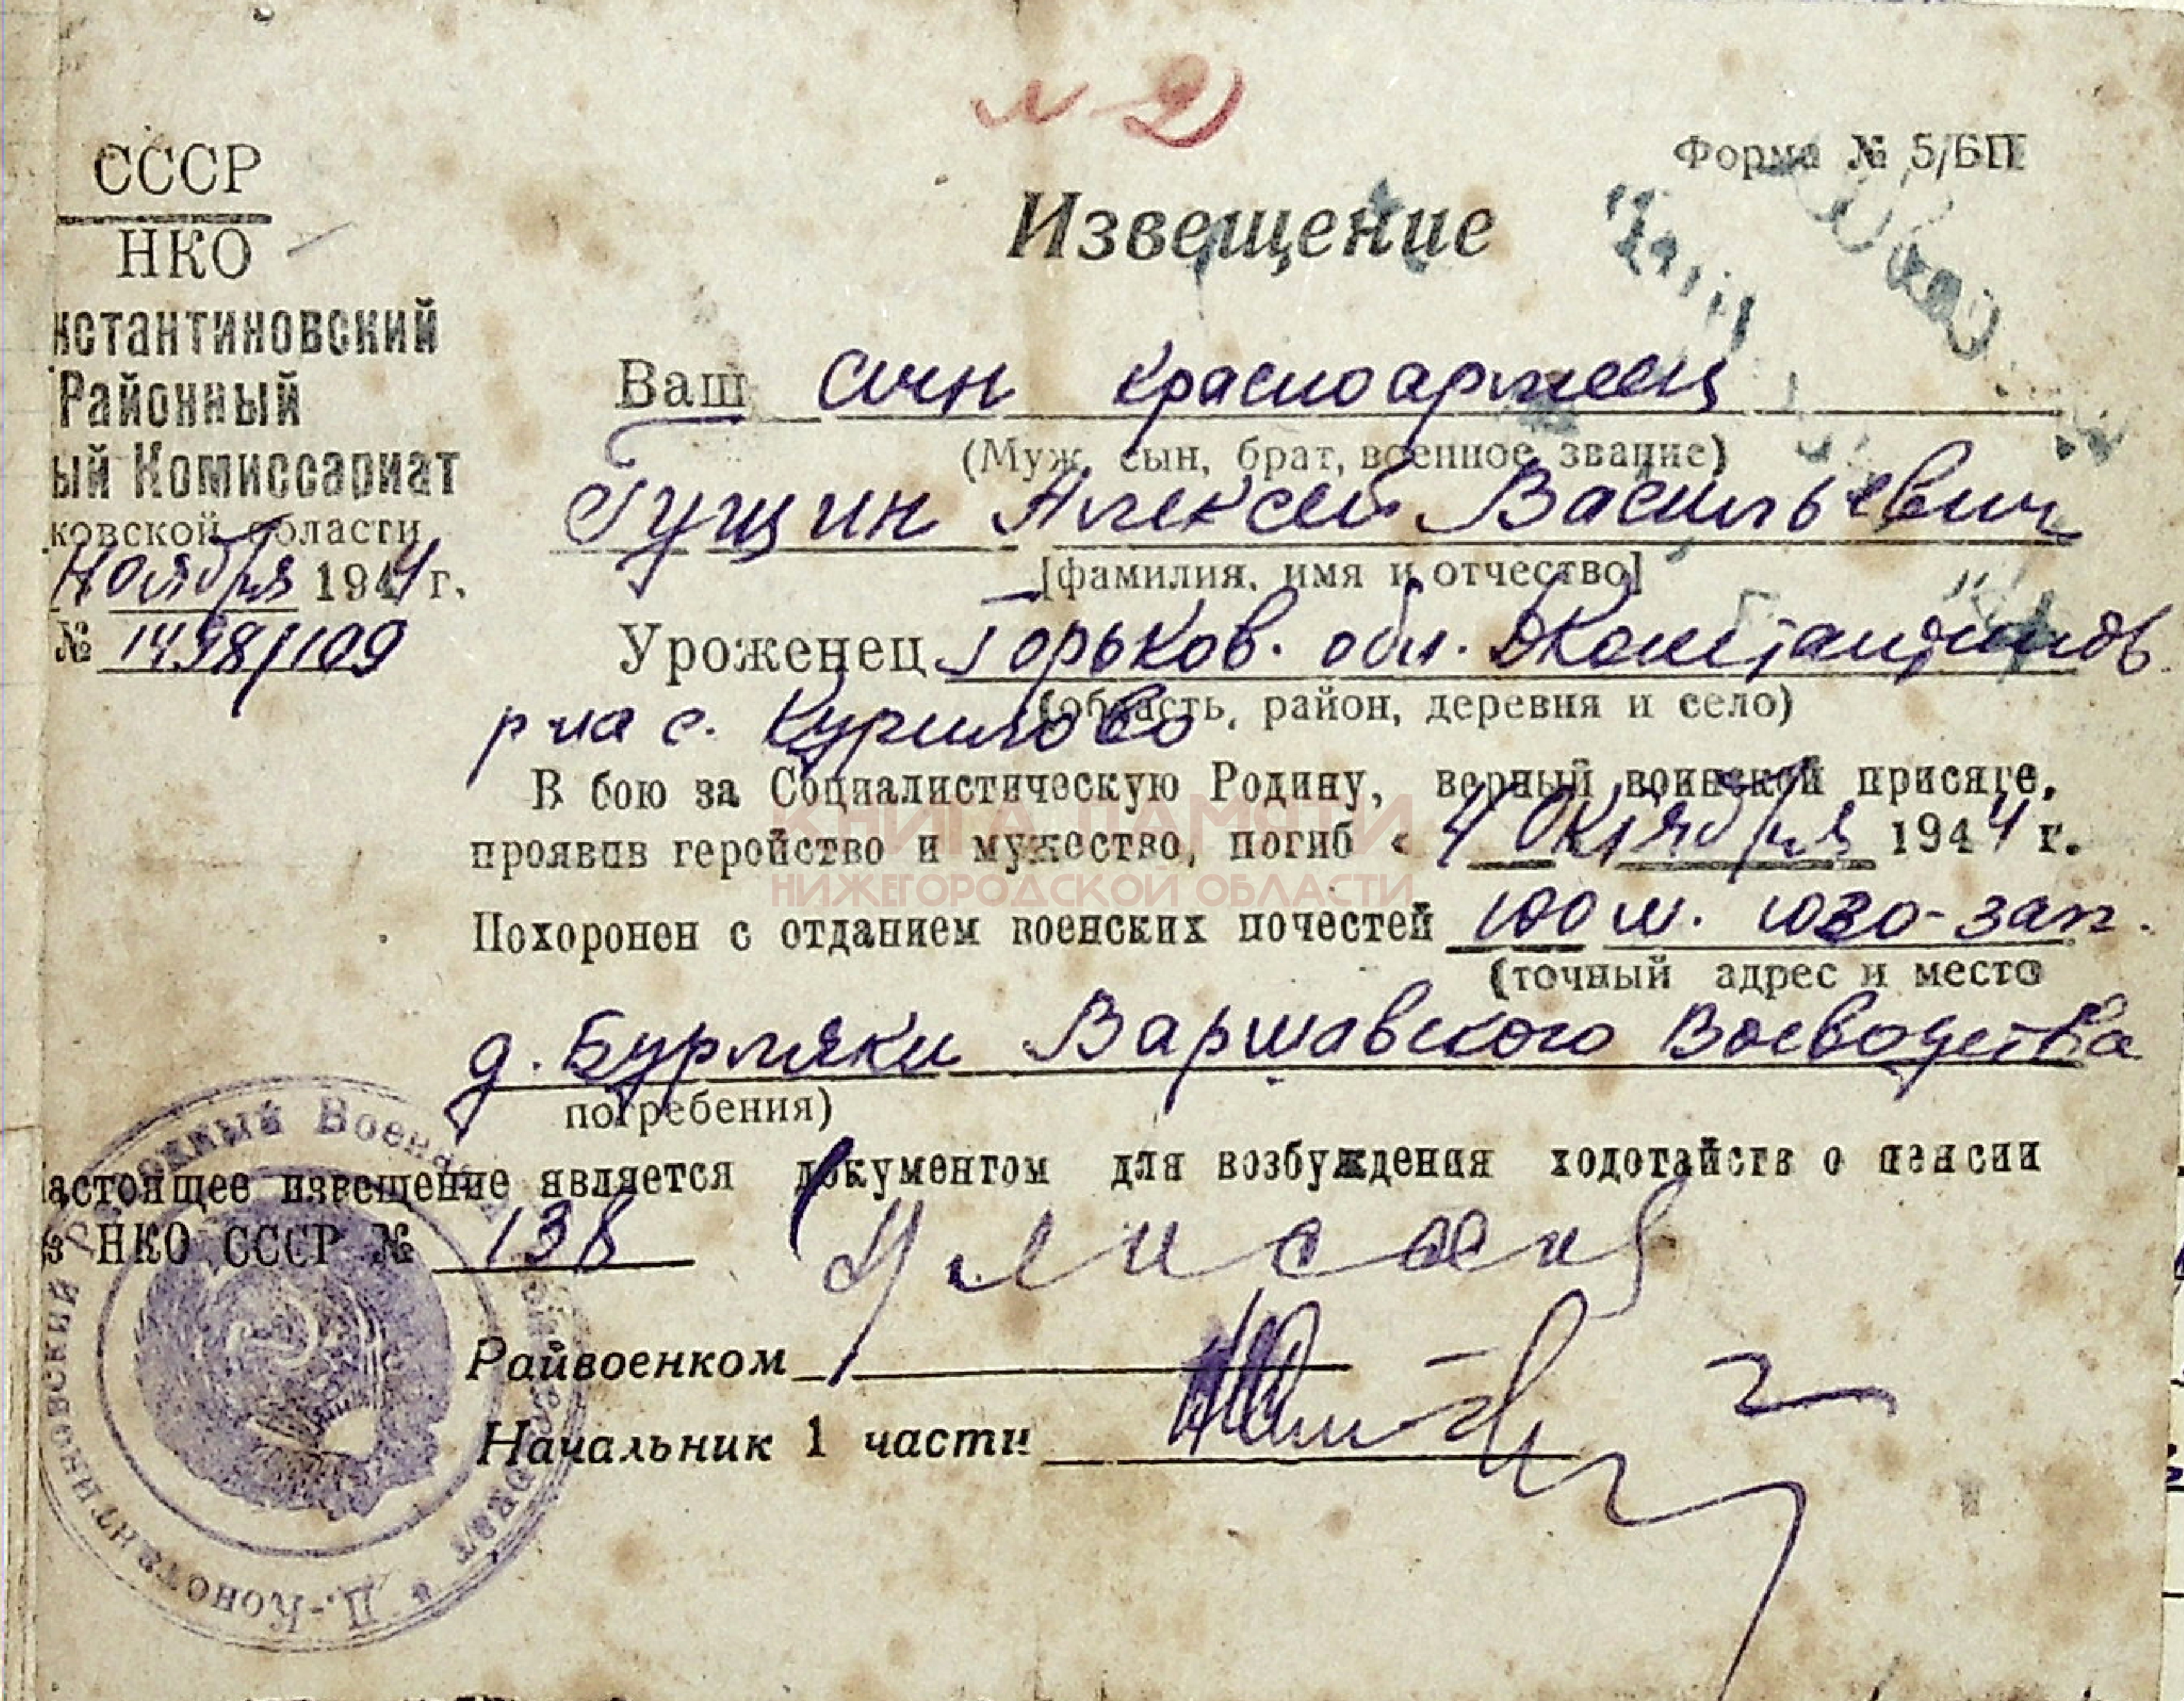 л 2
Форма № 5/БП
СССР
НКО
нстантиновский
Районный
ый Комиссариат
ковской области
Ноября 1944 г.
№ 1498/109
Извещение
Ваш сын красноармеец
(Муж, сын, брат, военное звание)
Гущин Алексей Васильевич
[фамилия, имя и отчество]
Уроженец Горьков. обл. ДКонстантинов.
(область, район, деревня и село)
р-на с. Курилово
В бою за Социалистическую Родину, верный воинской присяге,
проявив геройство и мужество, погиб « 4 Октября 1944 г.
Похоронен с отданием военских почестей 100 м. юго-зап.
(точный адрес и место
д. Бурляки Варшавского Воеводства
погребения)
астоящее извещение является документом для возбуждения ходотайств о пенсии
з НКО СССР № 138
Райвоенком
Начальник 1 части
Д.-Константиновский Районный Военный
КНИГА ПАМЯТИ
НИЖЕГОРОДСКОЙ ОБЛАСТИ